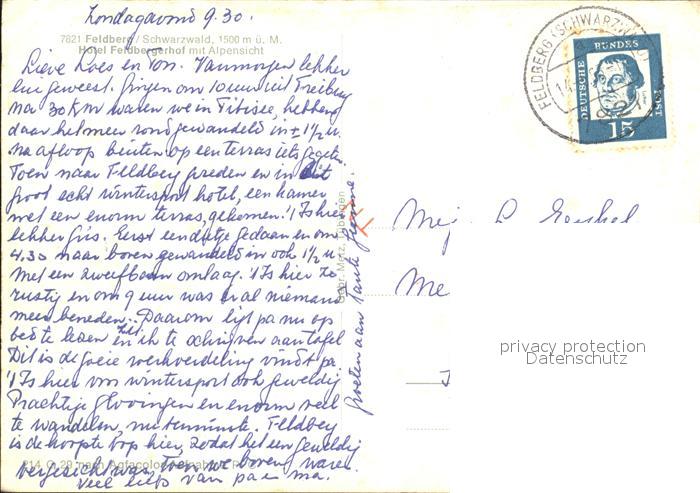 Zondagavond 9.30.
7821 Feldberg / Schwarzwald, 1500 m ü. M.
Hotel Feldbergerhof mit Alpensicht
Lieve Loes en Ton. Vanmorgen lekker
lui geweest. Gingen om 10 uur uit Freiburg
Na 30 km waren we in Titisee, hebben
daar het meer rond gewandeld in ± 1½ u.
Na afloop buiten op een terras iets gegeten.
Toen naar Feldberg gereden en in dit
groot echt wintersport hotel, een kamer
met een enorm terras, gekomen. 't Is hier
lekker fris. Eerst een dutje gedaan en om
4.30 naar boven gewandeld in ook 1½ u
Met een zweefbaan omlaag. 't Is hier zo
rustig en om 9 uur was er al niemand
meer beneden. Daarom ligt pa nu op
bed te lezen en ik te schrijven aan tafel
Dit is de goeie werkverdeling vindt pa.
't Is hier voor wintersport ook geweldig.
Prachtige glooiingen en enorm veel
te wandelen, nu tenminste. Feldberg
is de hoogste top hier, zodat het een geweldig
vergezicht was, toen we boven waren.
Veel liefs van pa en ma.
Groeten aan tante
Gebr. Metz, Tübingen
FELDBERG (SCHWARZWALD)
DEUTSCHE BUNDESPOST
15
Mej
Me
privacy protection
Datenschutz